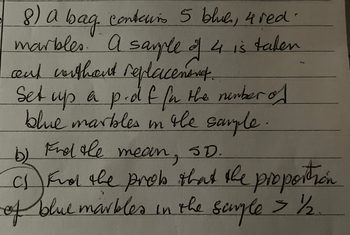 8) A bag contains 5 blue, 4 red.
marbles. A sample of 4 is taken
out without replacement.
Set up a p.d.f for the number of
blue marbles in the sample.
b) Find the mean, SD.
c) Find the prob that the proportion
of blue marbles in the sample > 1/2.